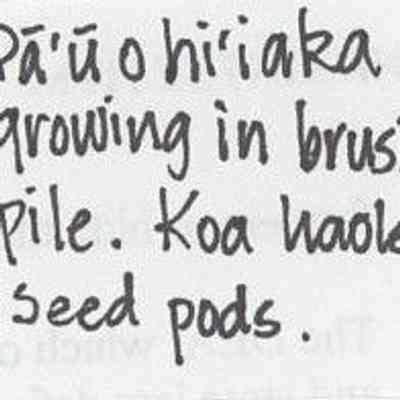 Pā'ū o hi'iaka
growing in brus
pile. Koa haole
seed pods.